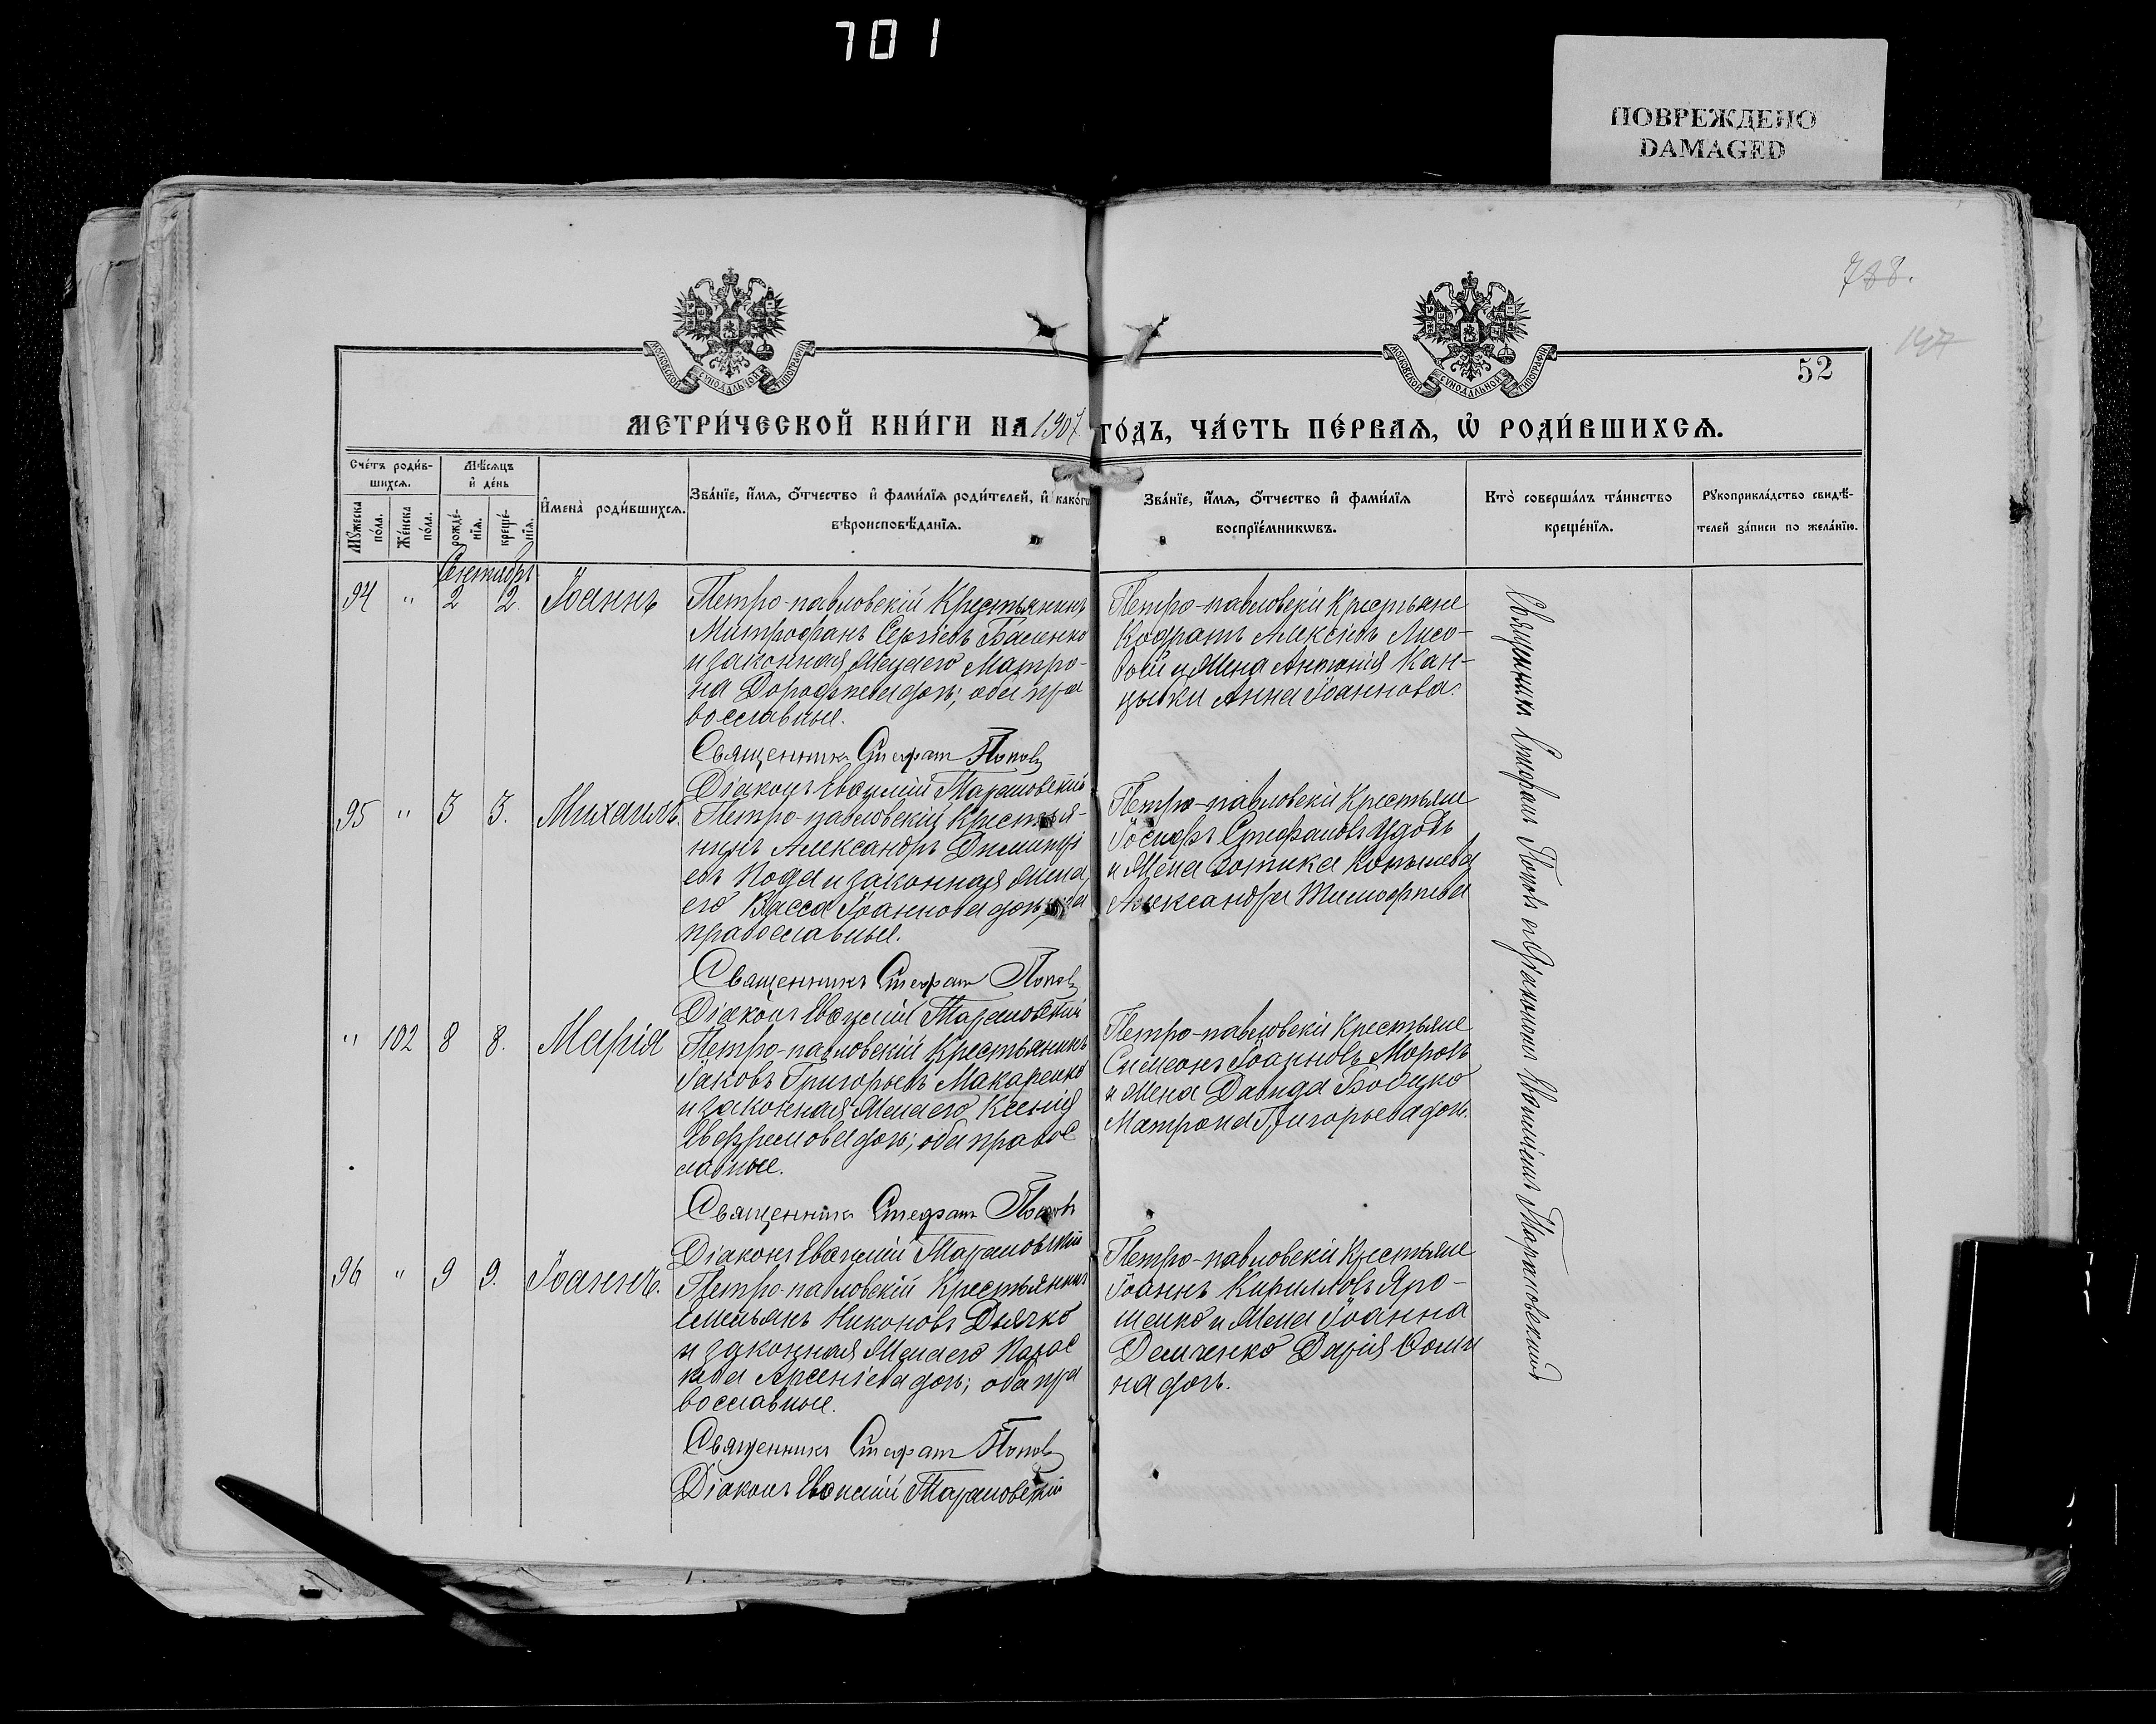 701
ПОВРЕЖДЕНО
DAMAGED
788.
147
МОСКОВСКОЙ СУНОДАЛЬНОЙ ТИПОГРАФІИ
МОСКОВСКОЙ СУНОДАЛЬНОЙ ТИПОГРАФІИ
52
МЕТРИ́ЧЕСКОЙ КНИ́ГИ НА 1907 ГО́ДЪ, ЧА́СТЬ ПЕ́РВАѦ, Ѡ҆ РОДИ́ВШИХСѦ.
Сче́тъ роди́в-
шихсѧ.
Мѣ́сѧцъ
и҆ де́нь
Мꙋ́жеска
по́ла.
Же́нска
по́ла.
рожде́-
нїѧ.
креще́-
нїѧ.
И҆мена̀ роди́вшихсѧ.
Зва́нїе, и҆́мѧ, ѻ҆́тчество и҆ фами́лїѧ роди́телей, и҆ како́гѡ
вѣроисповѣ́данїѧ.
Зва́нїе, и҆́мѧ, ѻ҆́тчество и҆ фами́лїѧ
воспрїе́мникѡвъ.
Кто̀ соверша́лъ та́инство
креще́нїѧ.
Рꙋкоприкла́дство свидѣ́-
телей за́писи по жела́нїю.
Сентябрь
94 " 2 2. Іоаннъ
Петро-павловскій Крестьянинъ
Митрофанъ Сергіевъ Баленко
и законная жена его Матро-
на Дорофеева дочь; оба пра
вославные.
Священникъ Стефанъ Поповъ
Діаконъ Евфимій Тарановскій
Петро-павловскіи Крестьяне
Кодратъ Алексіевъ Лисо-
вой и жена Антонія Кан-
цыбки Анна Іоаннова.
95 " 3 3. Михаилъ.
Петро-павловскій Крестья-
нинъ Александръ Димитрі
евъ Кода и законная жена
его Васса Іоаннова дочь; оба
православные.
Священникъ Стефанъ Поповъ
Діаконъ Евфимій Тарановскій
Петро-павловскіи Крестьяне
Іосифъ Стефановъ Удодъ
и жена Зотика Копылова
Александра Тимофеева
" 102 8 8. Марія
Петро-павловскій Крестьянинъ
Іаковъ Григорьевъ Макаренко
и законная жена его Ксенія
Евфремова дочь; оба правос
лавные.
Священникъ Стефанъ Поповъ
Діаконъ Евфимій Тарановскій
Петро-павловскіи Крестьяне
Симеонъ Іоанновъ Морозъ
и жена Давида Бобицко
Матрона Григорьева дочь.
96 " 9 9. Іоаннъ.
Петро-павловскій Крестьянинъ
Емельянъ Никоновъ Дьячко
и законная жена его Парас
кева Арсеніева дочь; оба пра
вославные.
Священникъ Стефанъ Поповъ
Діаконъ Евфимій Тарановскій
Петро-павловскіи Крестьяне
Іоаннъ Кирилловъ Яро-
шенко и жена Іоанна
Демченко Дарія Фоми
на дочь.
Священникъ Стефанъ Поповъ съ Діакономъ Евфиміемъ Тарановскимъ